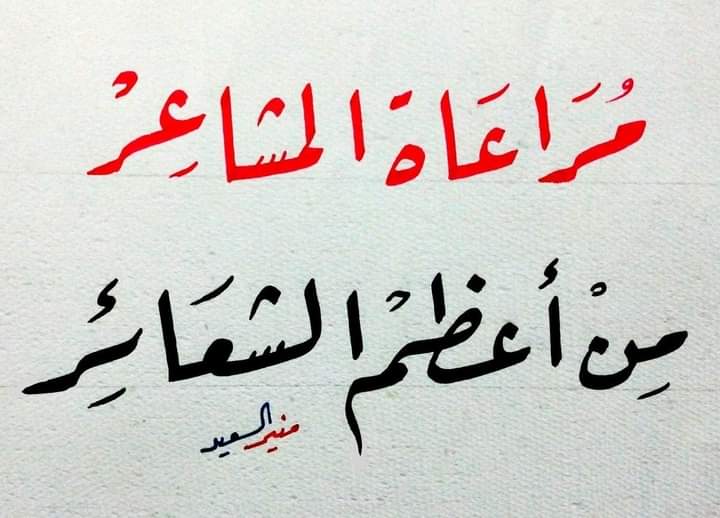 مُرَاعَاة المشاعِرْ
مِنْ أعظمْ الشعَائِر
منير السعيد